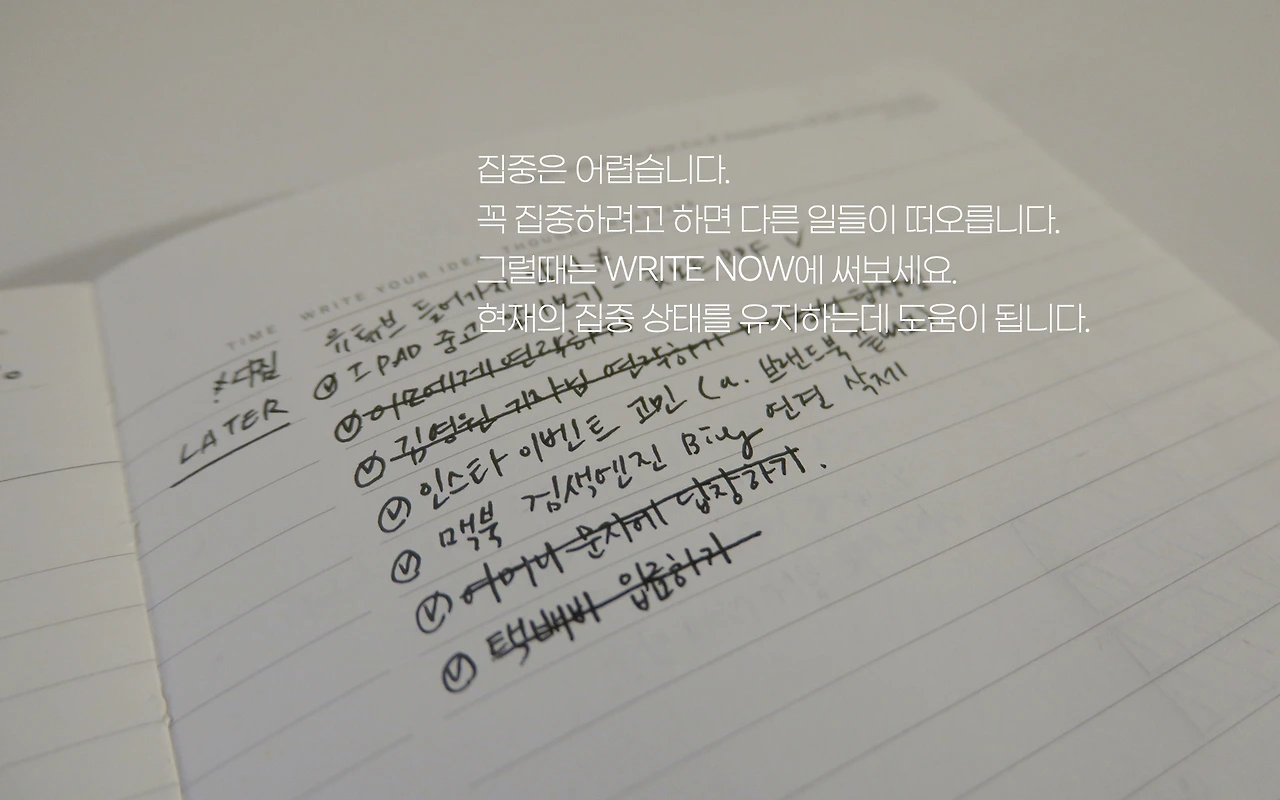 집중은 어렵습니다.
꼭 집중하려고 하면 다른 일들이 떠오릅니다.
그럴때는 WRITE NOW에 써보세요.
현재의 집중 상태를 유지하는데 도움이 됩니다.
TIME WRITE YOUR IDEA
유튜브 들어가지
LATER
I PAD 중고
이모에게 연락하기
김영원 기자님 연락하기
인스타 이벤트 고민 (a. 브랜드북
맥북 검색엔진 Bing 연결 삭제
어머니 문자에 답장하기.
택배비 입금하기